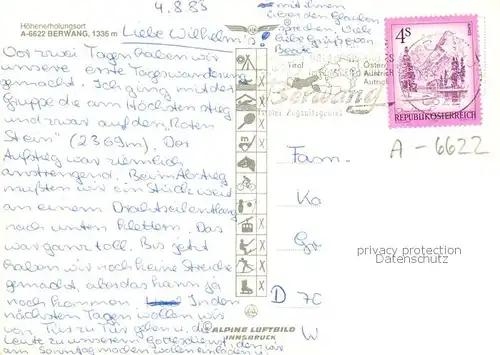 Höhenerholungsort
A-6622 BERWANG, 1336 m
4.8.83
Liebe Wilhelms!
Vor zwei Tagen haben wir
unsere erste Tageswanderung
gemacht. Ich ging mit der
Gruppe die am Höchsten stieg
und zwar auf den "Roten
Stein" (2369m). Der
Aufstieg war ziemlich
anstrengend. Beim Abstieg
mußten wir ein Stück weit
an einem Drahtseil entlang
nach unten klettern. Das
war ganz toll. Bis jetzt
haben wir noch keine Streiche
gemacht, aber das kann ja
noch kommen. In den
nächsten Tagen wollen wir
von Tür zu Tür gehen u. die
Leute zu unserem Gottesdienst, den wir
am Sonntag machen wollen einladen
mit ihnen
über den Glauben
sprechen. Viele
Grüße
Beate
Tirol
Österreich
Austria
Autriche
Berwang
Tiroler Zugspitzgebiet
4S
REPUBLIK ÖSTERREICH
A - 6622
Fam.
Ka
Gr
D 7C
W
privacy protection
Datenschutz
ALPINE LUFTBILD
INNSBRUCK